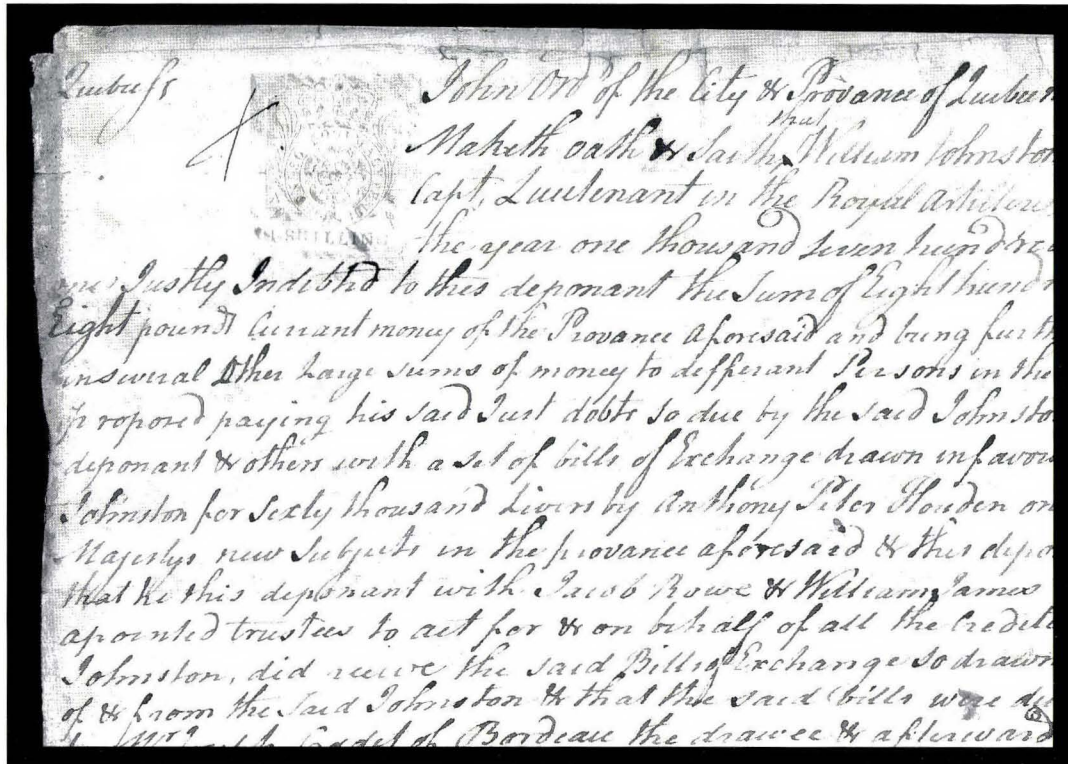 Quebec ss
John Ord of the City & Provance of Quebec
Maketh oath & saith that William Johnston
Capt, Lieutenant in the Royal Artillery
SHILLING
the year one thousand seven hundre
Justly Indebted to this deponant the sum of Eight hund
Eight pounds Currant money of the Provance aforesaid and being furth
in several Other Large sums of money to differant Persons in the
proposed paying his said Just debts so due by the said Johnsto
deponant & others with a set of bills of Exchange drawn in favou
Johnston for Sixty thousand Livers by Anthony Peter on
Majestys new Subjects in the provance aforesaid & this depo
that he this deponant with Jacob Rowe & William James
apointed trustees to act for & on behalf of all the Credito
Johnston, did receive the said Bills of Exchange so drawn
of & from the said Johnston & that the said bills were du
Mr Cadet of Bordeau the drawee & afterward